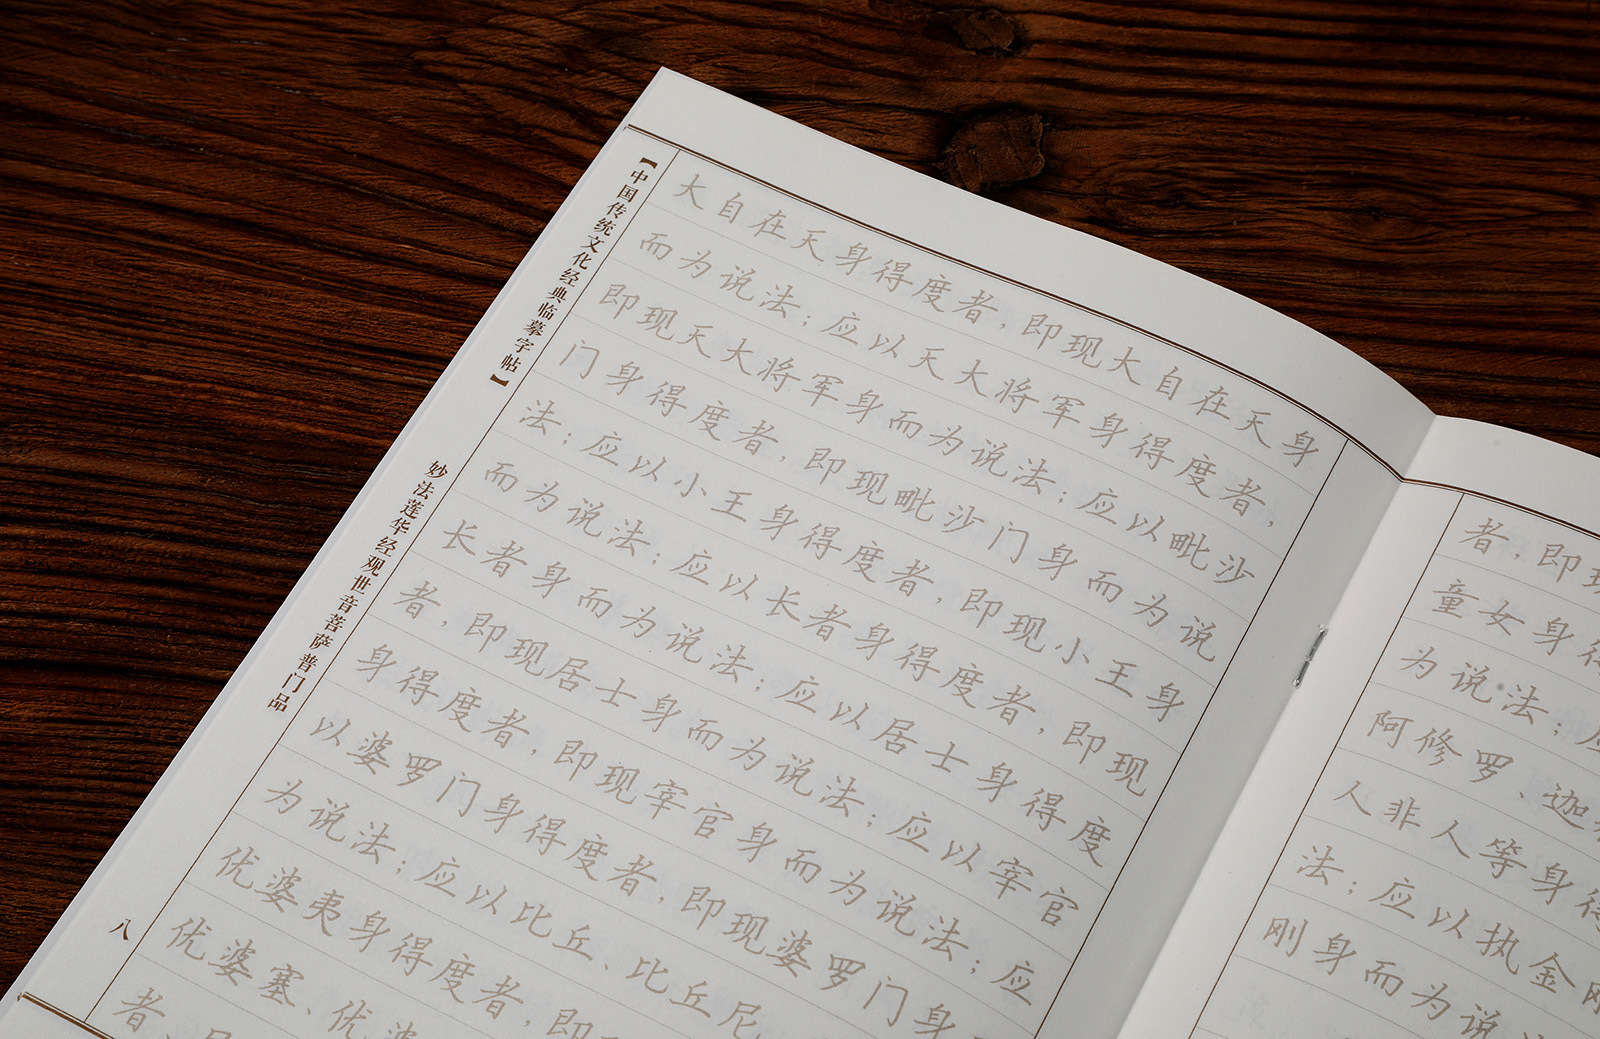 【中国传统文化经典临摹字帖】
妙法莲华经观世音菩萨普门品
八
大自在天身得度者,即现大自在天身
而为说法;应以天大将军身得度者,
即现天大将军身而为说法;应以毗沙
门身得度者,即现毗沙门身而为说
法;应以小王身得度者,即现小王身
而为说法;应以长者身得度者,即现
长者身而为说法;应以居士身得度
者,即现居士身而为说法;应以宰官
身得度者,即现宰官身而为说法;应
以婆罗门身得度者,即现婆罗门身
为说法;应以比丘、比丘尼
优婆夷身得度者,即
优婆塞、优婆
者、
者,即现
童女身得
为说法;应
阿修罗、迦
人非人等身得
法;应以执金刚
刚身而为说